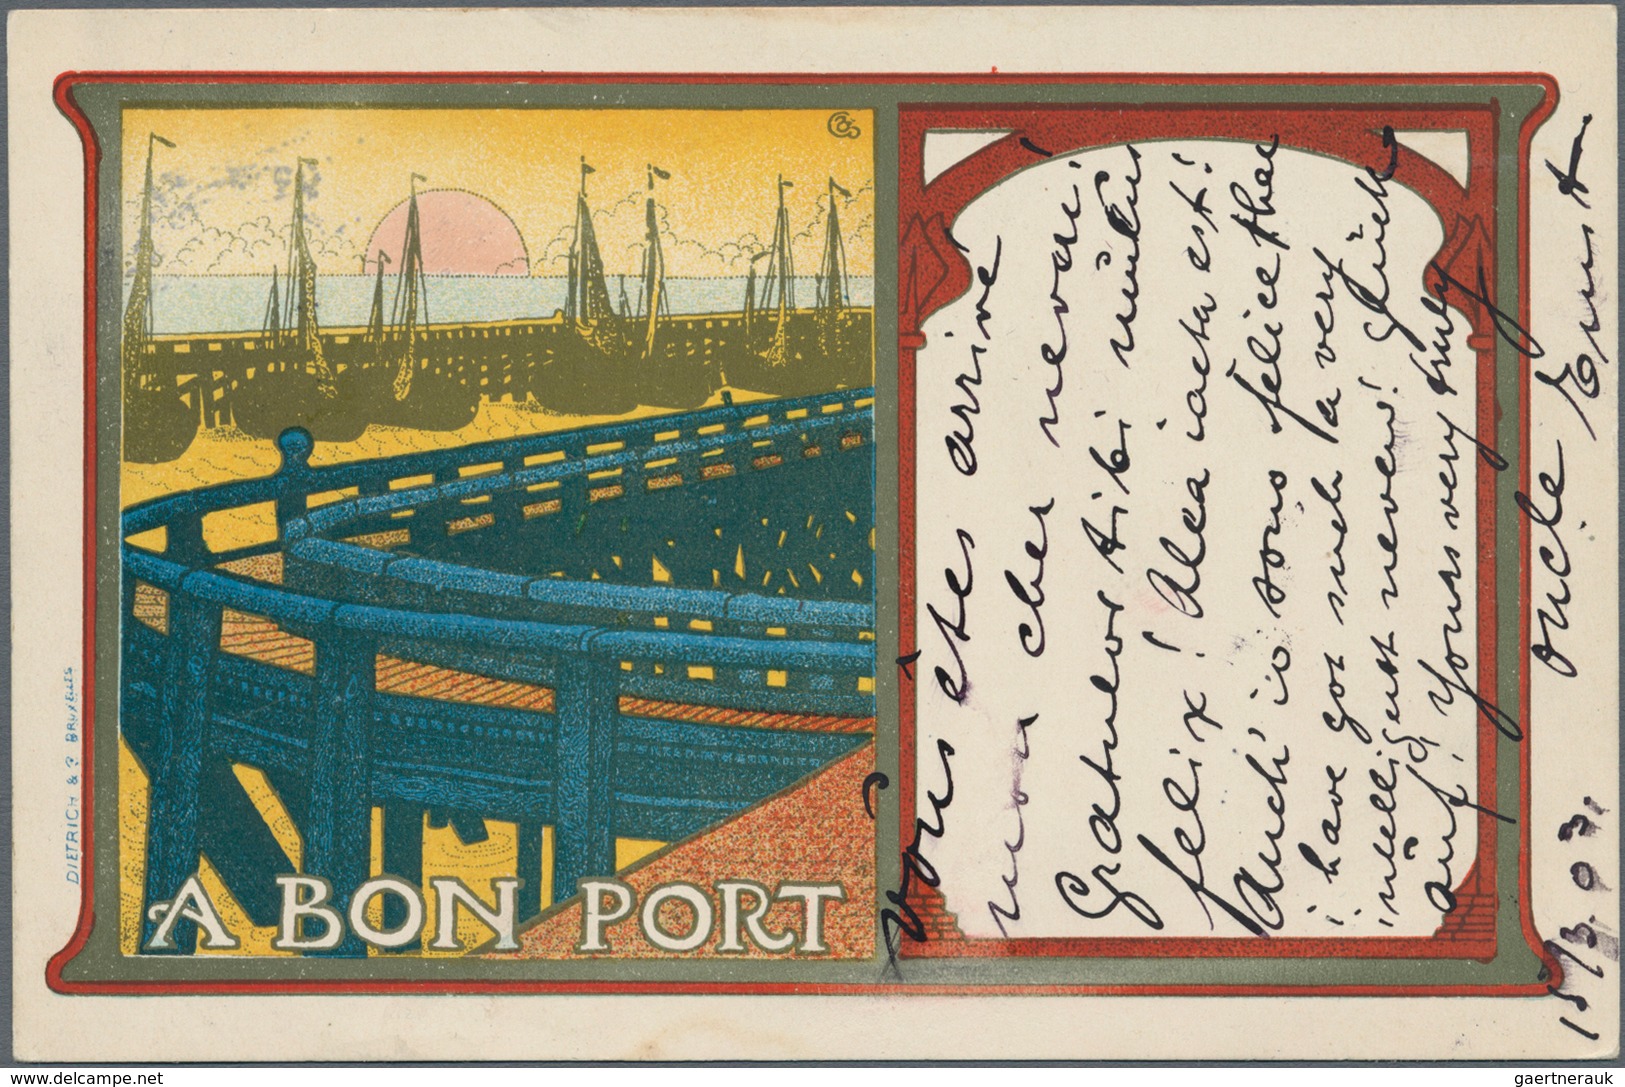 DIETRICH & Cº BRUXELLES
A BON PORT
Vous êtes arrivé
mon cher neveu!
Gratulor tibi multum
felix! Alea iacta est!
Anch' io sono felice that
i have got such la very
intelligent neveu! Glück
auf! Yours very truly
oncle Ernst
15/3. 03.
delcampe.net
gaertnerauk